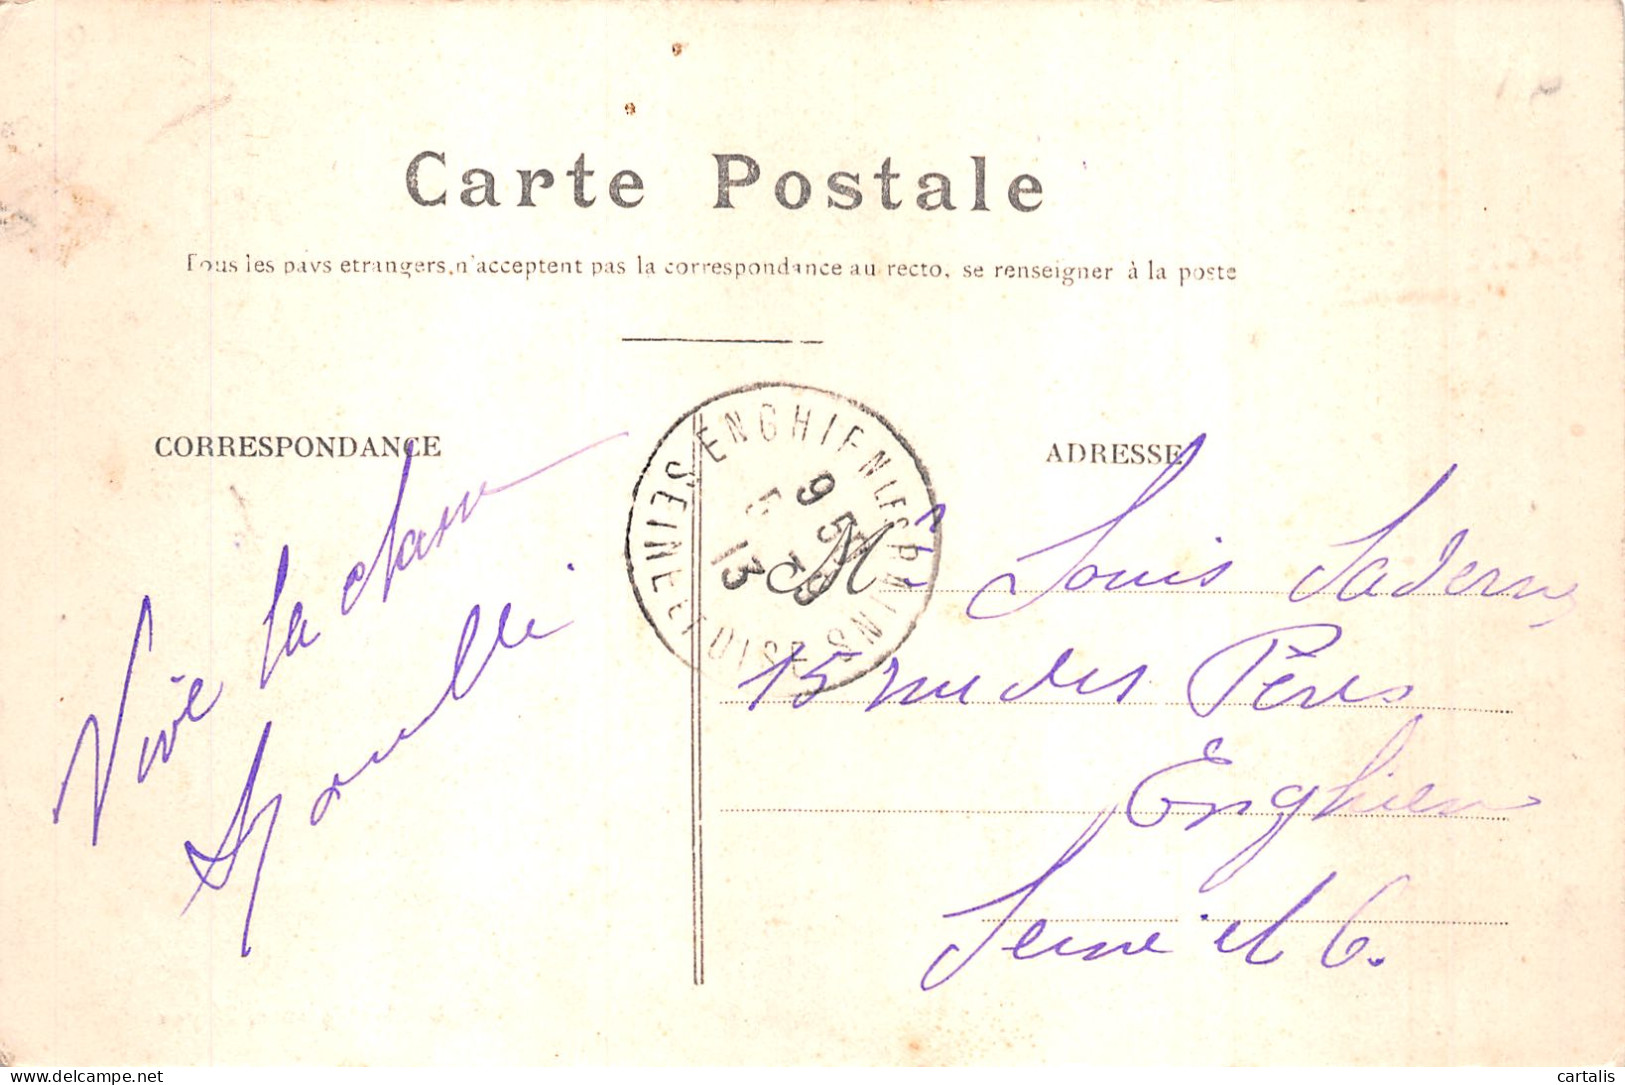 Carte Postale
Tous les pays etrangers, n'acceptent pas la correspondance au recto, se renseigner à la poste
CORRESPONDANCE
ADRESSE
ENGHIEN LES BAINS
SEINE-ET-OISE
9 5
13
Vive la
Mr Louis
15 rue des Pères
Enghien
Seine et O.
www.delcampe.net
cartalis